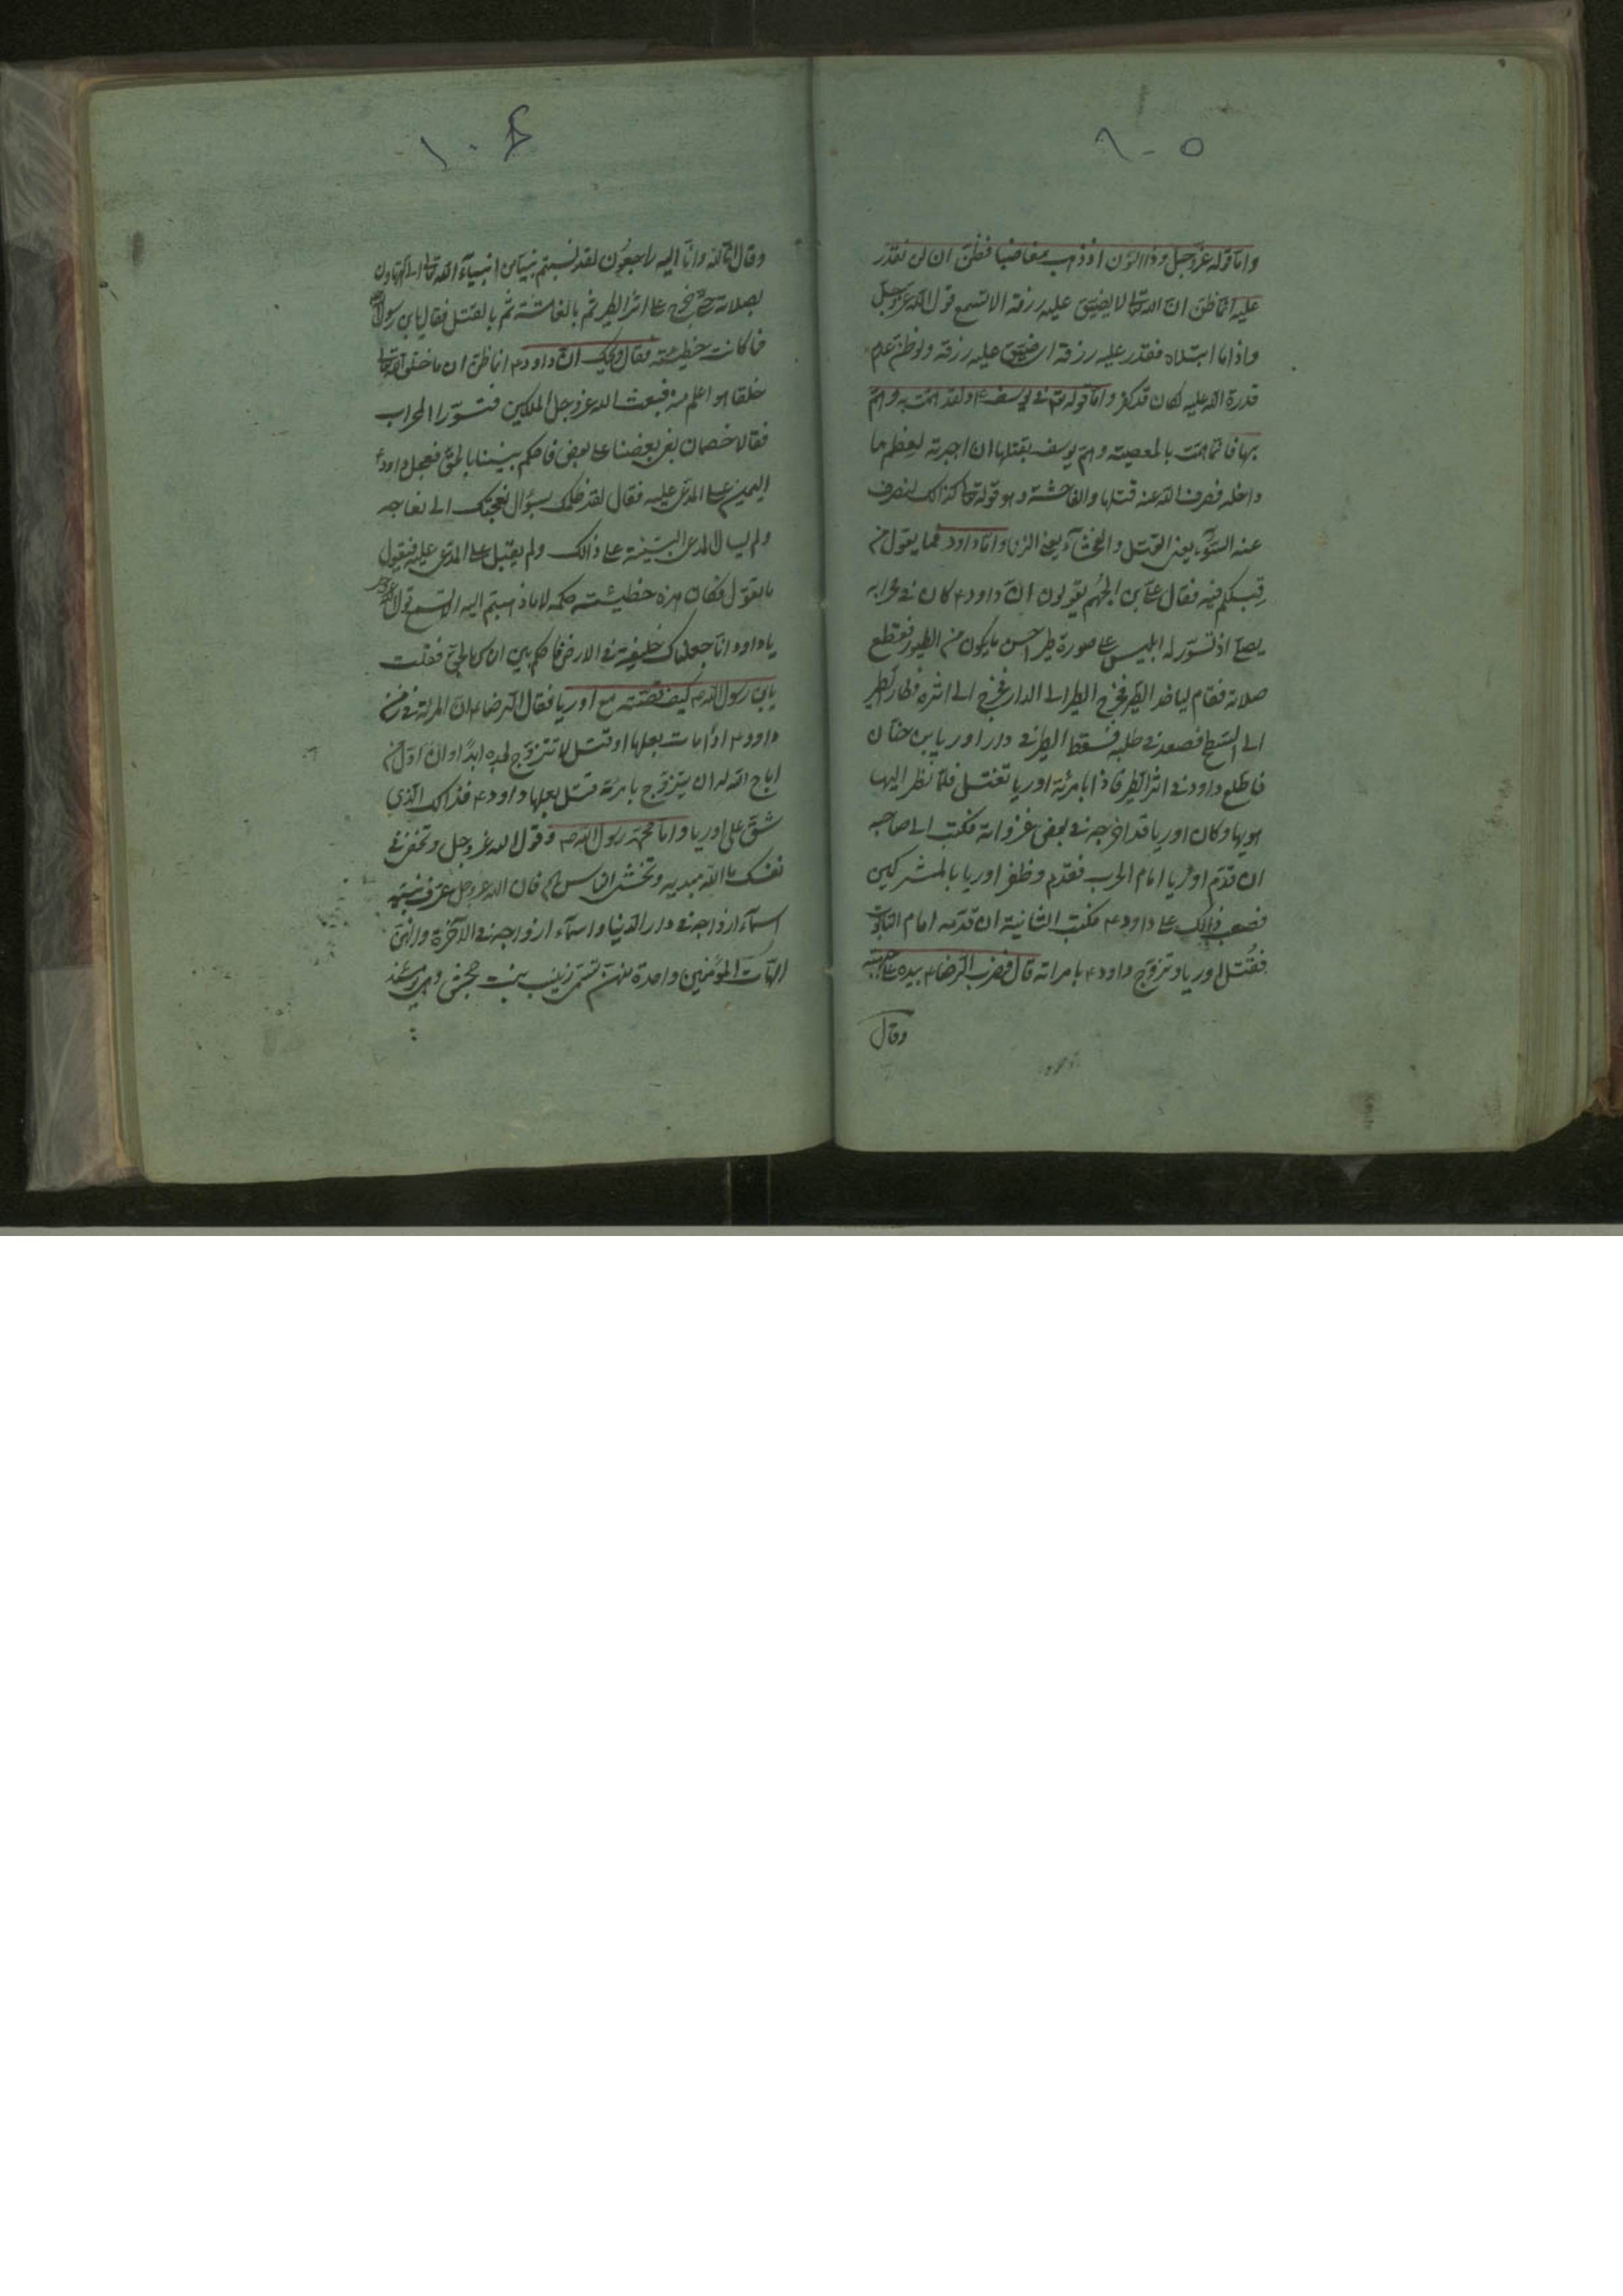 ١٠٥
واما قوله عز وجل وذا النون اذ ذهب مغاضبا فظن ان لن نقدر
عليه انما ظن ان الله تعالى لا يضيق عليه رزقه الا تسمع قول الله عز وجل
واذا ما ابتلاه فقدر عليه رزقه اى ضيق عليه رزقه ولو ظن عدم
قدرة الله عليه لكان قد كفر واما قوله تم فى يوسف ٤ ولقد همت به وهم
بها فانما همت بالمعصية وهم يوسف بقتلها ان اجبرته لعظم ما
داخله فصرف الله عنه قتلها والفاحشة وهو قوله تعالى كذالك لنصرف
عنه السوء يعنى القتل والفحشآء يعنى الزنا واما داود فما يقول من
قبلكم فيه فقال على بن الجهم يقولون ان داود ٤ كان فى محرابه
يصلى اذ تسور له ابليس على صورة طير احسن ما يكون من الطيور فقطع
صلاته فقام لياخذ الطير فخرج الطير الى الدار فخرج الى اثره فطار الطير
الى السطح فصعد فى طلبه فسقط الطير فى دار اوريا بن حنان
فاطلع داود فى اثر الطير فاذا بامرئة اوريا تغتسل فلما نظر اليها
هويها وكان اوريا قد اخرجه فى بعض غزواته فكتب الى صاحبه
ان قدم اوريا امام الحرب فقدم وظفر اوريا بالمشركين
فصعب ذالك على داود ٤ فكتب الثانية ان قدمه امام التابوت
فقتل اوريا وتزوج داود ٤ بامراته قال فضرب الرضا ٤ بيده على جبهته
وقال
١٠٦
وقال انا لله وانا اليه راجعون لقد نسبتم نبيا من انبيآء الله تعالى الى التهاون
بصلاته حتى خرج على اثر الطير ثم بالفاحشة ثم بالقتل فقال يابن رسول الله
فما كانت خطيئته فقال ويحك ان داود ٤ انما ظن ان ما خلق الله تعالى
خلقا هو اعلم منه فبعث الله عز وجل الملكين فتسورا المحراب
فقالا خصمان بغى بعضنا على بعض فاحكم بيننا بالحق فعجل داود ٤
على المدعى عليه فقال لقد ظلمك بسؤال نعجتك الى نعاجه
ولم يسال المدعى البينة على ذالك ولم يقبل على المدعى عليه فيقول
ما تقول فكان هذه خطيئته حكمه لا ما ذهبتم اليه الا تسمع قول الله عز وجل
يا داود انا جعلناك خليفة فى الارض فاحكم بين الناس بالحق فقلت
يابن رسول الله ص كيف قصته مع اوريا فقال الرضا ٤ ان المرئة فى زمن
داود ٤ اذا مات بعلها او قتل لا تتزوج بعده ابدًا وان اول من
اباح الله له ان يتزوج بامرئة قتل بعلها داود ٤ فذاك الذى
شق على اوريا واما محمد رسول الله ص وقول الله عز وجل وتخفى فى
نفسك ما الله مبديه وتخشى الناس فان الله عز وجل عرف نبيه
اسمآء ازواجه فى دار الدنيا واسمآء ازواجه فى الآخرة وانهن
امهات المؤمنين واحدة منهن تسمى زينب بنت جحش وهى يومئذ